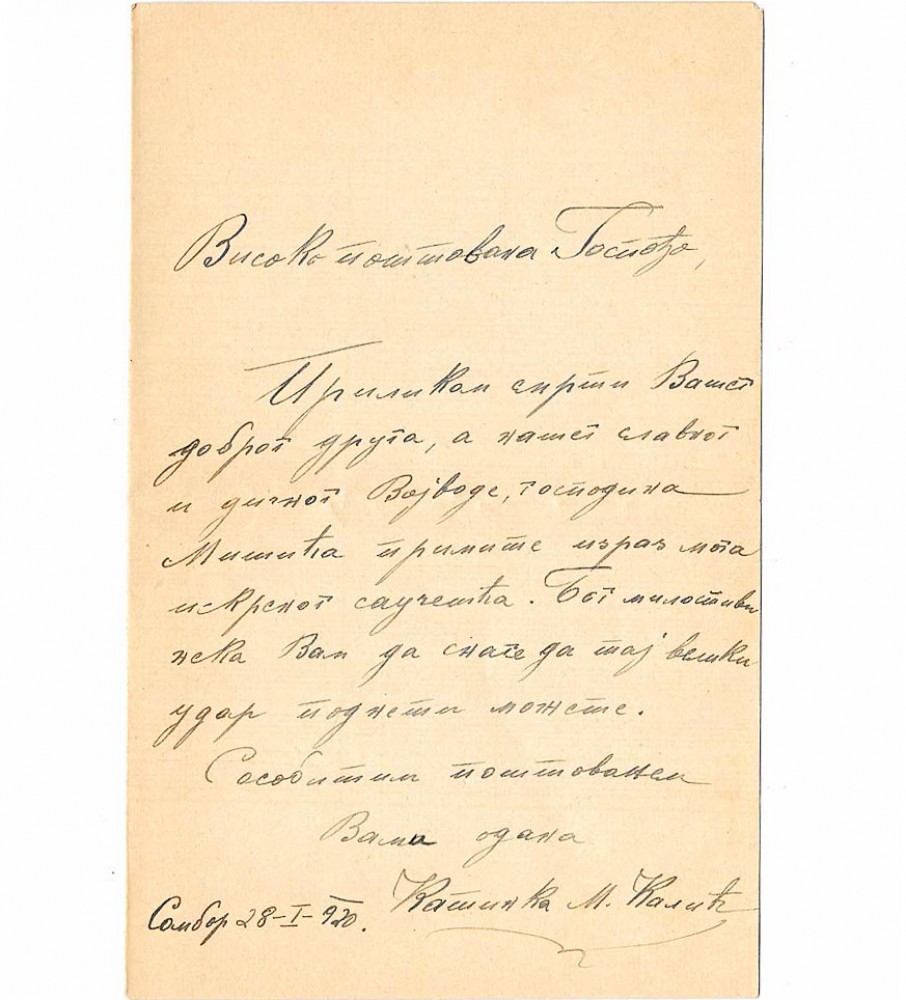 Високопоштована Госпођо,
Приликом смрти Вашег
доброг друга, а нашег славног
и дичног Војводе, господина
Мишића примите израз мога
искреног саучешћа. Бог милостиви
нека Вам да снаге да тај велики
удар поднети можете.
С особитим поштовањем
Вама одана
Катинка М. Калић
Сомбор 28-I-920.